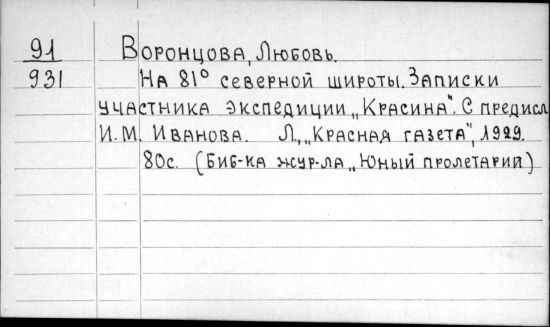 91 Воронцова, Любовь.
931 На 81° северной широты. Записки
участника экспедиции „Красина". С предисл
И.М. Иванова. Л., „Красная газета", 1929.
80с. (Биб-ка жур-ла „Юный пролетарий)